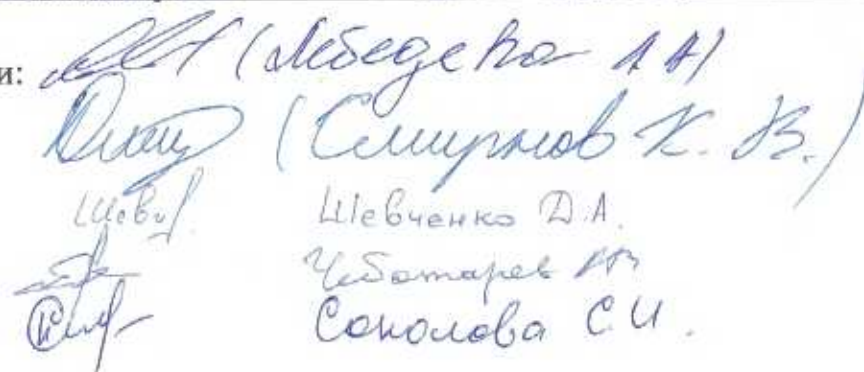 и: (Лебедева А А)
(Смирнов К. В.)
Шевченко Д.А.
Чеботарев
Соколова С.И.